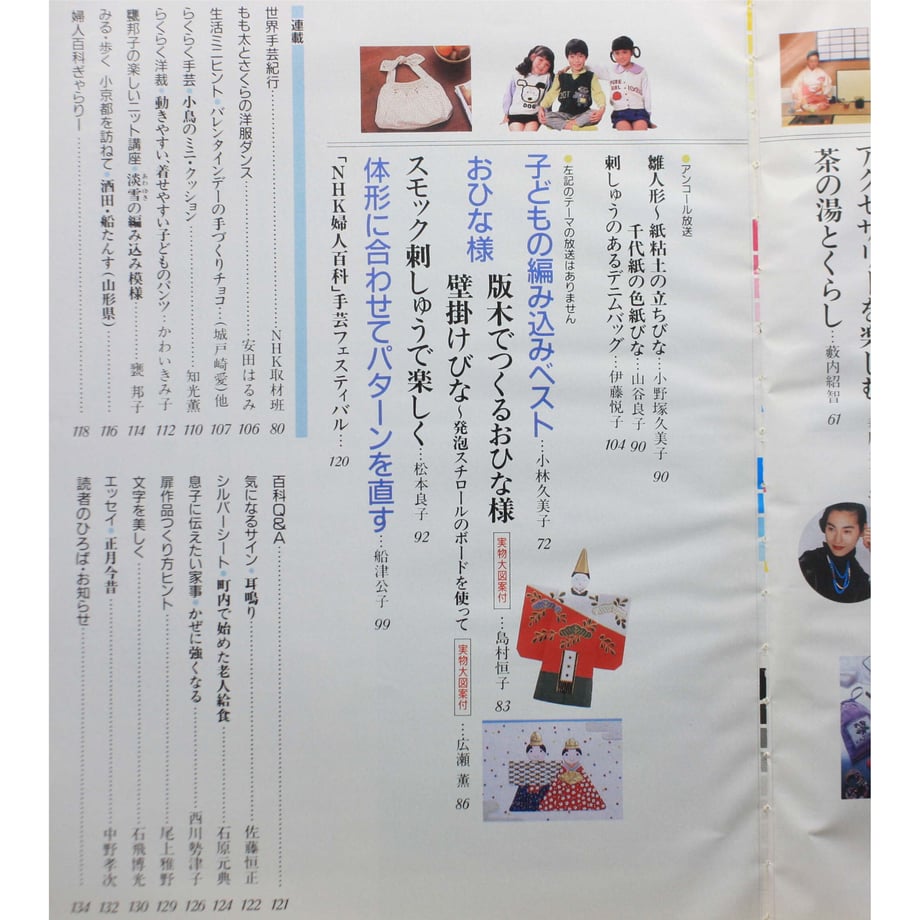 茶の湯とくらし…藪内紹智 61
●アンコール放送
雛人形～紙粘土の立ちびな…小野塚久美子 90
千代紙の色紙びな…山谷良子 90
刺しゅうのあるデニムバッグ…伊藤悦子 104
●左記のテーマの放送はありません
子どもの編み込みベスト…小林久美子 72
おひな様
版木でつくるおひな様 実物大図案付 …島村恒子 83
壁掛けびな～発泡スチロールのボードを使って 実物大図案付 …広瀬 薫 86
スモック刺しゅうで楽しく…松本良子 92
体形に合わせてパターンを直す…船津公子 99
「NHK婦人百科」手芸フェスティバル… 120
連載
世界手芸紀行…NHK取材班 80
もも太とさくらの洋服ダンス…安田はるみ 106
生活ミニヒント●バレンタインデーの手づくりチョコ…(城戸崎愛)他 107
らくらく手芸●小鳥のミニ・クッション…知光薫 110
らくらく洋裁●動きやすい、着せやすい子どものパンツ…かわいきみ子 112
甕邦子の楽しいニット講座●淡雪の編み込み模様…甕 邦子 114
あわゆき
みる・歩く 小京都を訪ねて●酒田・船たんす(山形県)… 116
婦人百科ぎゃらりー… 118
百科Q&A… 121
気になるサイン●耳鳴り…佐藤恒正 122
シルバーシート●町内で始めた老人給食…石原元典 124
息子に伝えたい家事●かぜに強くなる…西川勢津子 126
扉作品つくり方ヒント…尾上雅野 129
文字を美しく…石飛博光 130
エッセイ●正月今昔…中野孝次 132
読者のひろば・お知らせ… 134